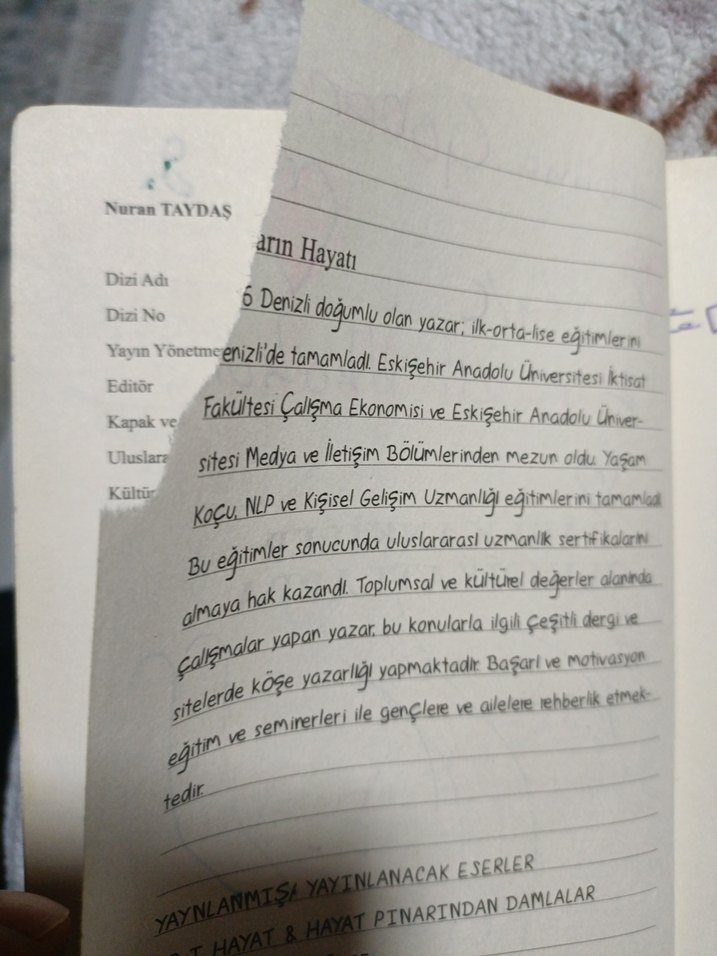 Nuran TAYDAŞ
Dizi Adı
Dizi No
Yayın Yönetme
Editör
Kapak ve
Uluslara
Kültür
arın Hayatı
6 Denizli doğumlu olan yazar; ilk-orta-lise eğitimlerini
enizli'de tamamladı. Eskişehir Anadolu Üniversitesi İktisat
Fakültesi Çalışma Ekonomisi ve Eskişehir Anadolu Üniver-
sitesi Medya ve İletişim Bölümlerinden mezun oldu. Yaşam
Koçu, NLP ve Kişisel Gelişim Uzmanlığı eğitimlerini tamamladı
Bu eğitimler sonucunda uluslararası uzmanlık sertifikalarını
almaya hak kazandı. Toplumsal ve kültürel değerler alanında
çalışmalar yapan yazar, bu konularla ilgili çeşitli dergi ve
sitelerde köşe yazarlığı yapmaktadır. Başarı ve motivasyon
eğitim ve seminerleri ile gençlere ve ailelere rehberlik etmek-
tedir.
YAYNLANMIŞ/ YAYINLANACAK ESERLER
HAYAT & HAYAT PINARINDAN DAMLALAR